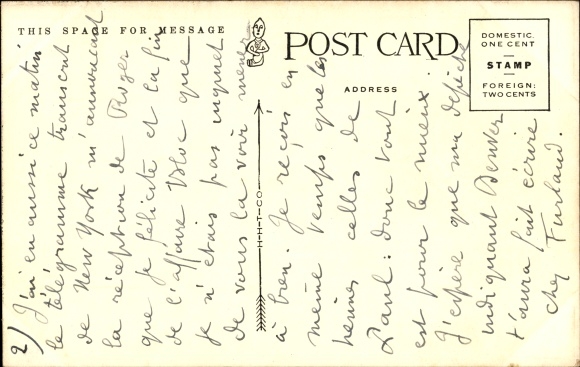 THIS SPACE FOR MESSAGE
POST CARD
ADDRESS
DOMESTIC.
ONE CENT
STAMP
FOREIGN:
TWO CENTS
H-H-T-CO.
2) J'ai eu aussi ce matin
le télégramme transmit
de New York m'annonçant
la réception de Roger
que je félicite et la fin
de l'affaire Bloc que
je n'étais pas inquiet
de vous la voir mener
à bien. Je reçois en
même temps que les
tiennes celles de
Paul: donc tout
est pour le mieux.
J'espère que ma dépêche
indiquant Denver
t'aura fait écrire
chez Furland.